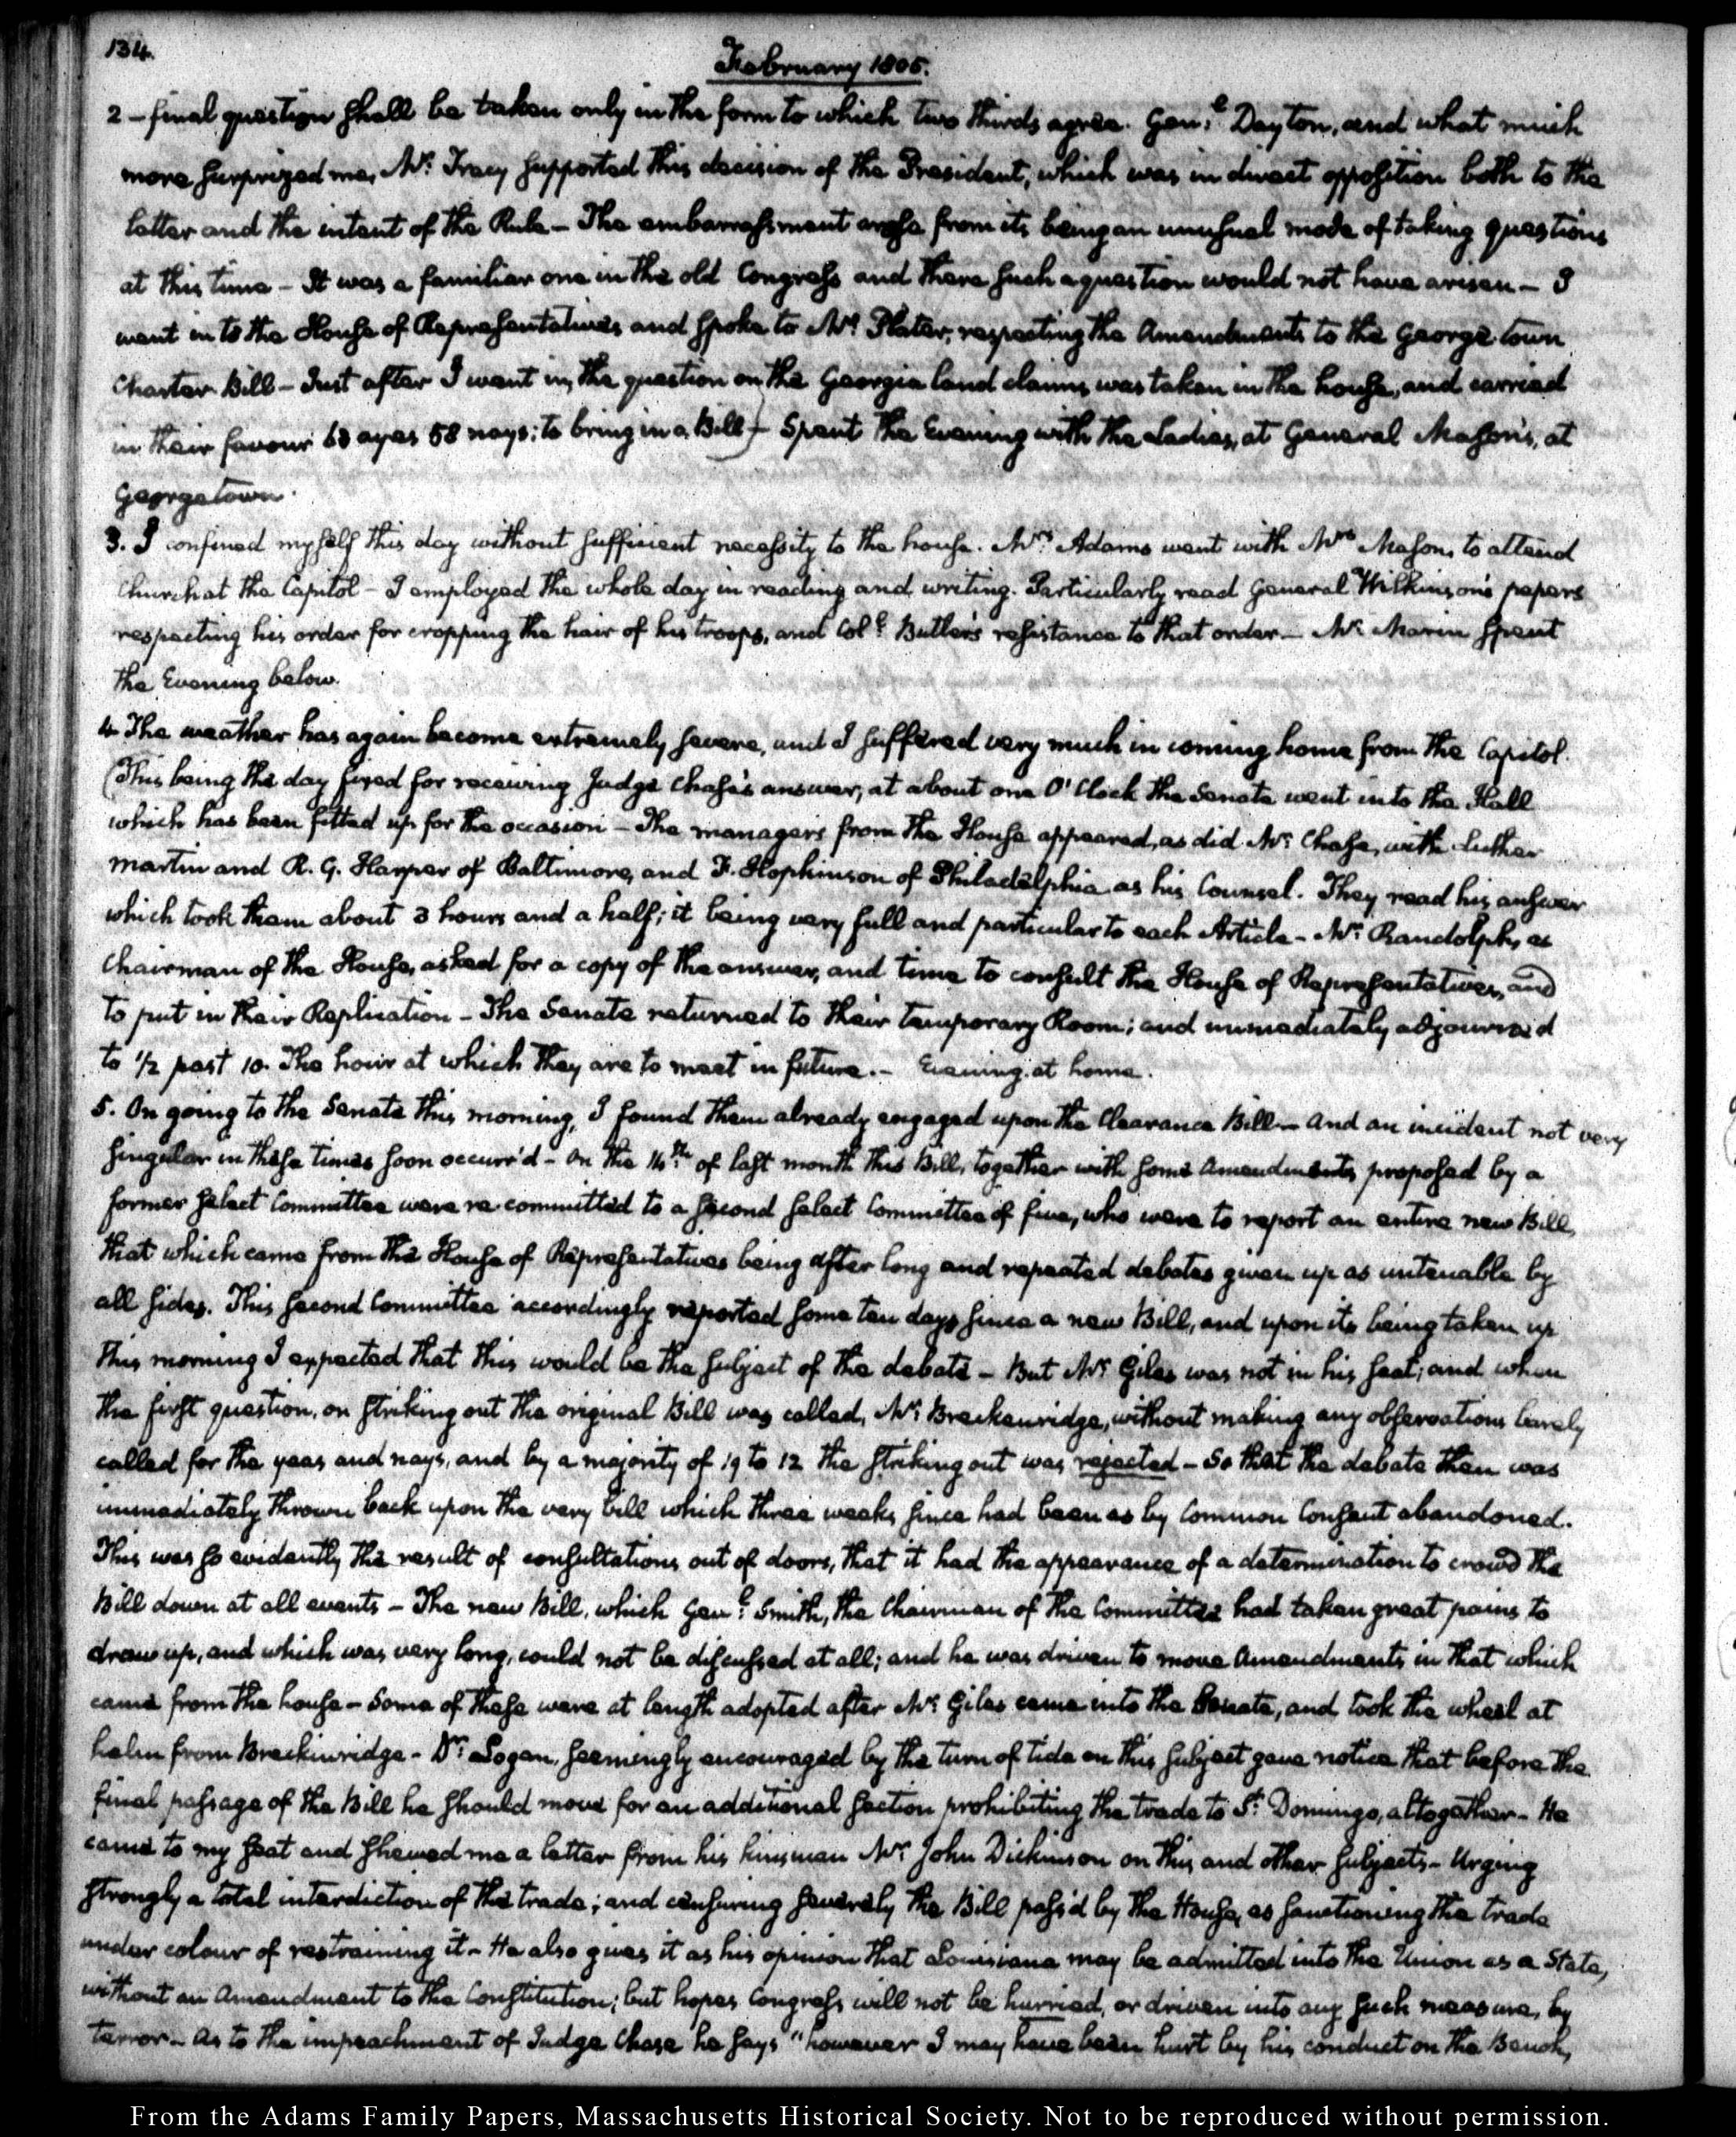 134.
February 1805.
2 – final question shall be taken only in the form to which two thirds agree. Genl. Dayton, and what much
more surprized me, Mr. Tracy supported this decision of the President, which was in direct opposition both to the
letter and the intent of the Rule – The embarrassment arose from its being an unusual mode of taking questions
at this time – It was a familiar one in the old Congress and there such a question would not have arisen – I
went in to the House of Representatives and spoke to Mr. Plater, respecting the Amendments to the George town
Charter Bill – Just after I went in, the question on the Georgia land claims was taken in the house, and carried
in their favour 63 ayes 58 nays; to bring in a Bill) – Spent the Evening with the Ladies, at General Mason's, at
Georgetown.
3. I confined myself this day without sufficient necessity to the house. Mrs. Adams went with Mrs. Mason, to attend
Church at the Capitol – I employed the whole day in reading and writing. Particularly read General Wilkinson's papers
respecting his order for cropping the hair of his troops, and Coll. Butler's resistance to that order – Mr. Marin spent
the Evening below.
4. The weather has again become extremely severe, and I suffered very much in coming home from the Capitol.
(This being the day fixed for receiving Judge Chase's answer, at about one O'Clock the Senate went into the Hall
which has been fitted up for the occasion – The managers from the House appeared, as did Mr. Chase, with Luther
Martin and R. G. Harper of Baltimore, and F. Hopkinson of Philadelphia as his Counsel. They read his answer
which took them about 3 hours and a half; it being very full and particular to each Article – Mr. Randolph, as
Chairman of the House, asked for a copy of the answer, and time to consult the House of Representatives, and
to put in their Replication – The Senate returned to their temporary Room; and immediately adjourned
to 1/2 past 10. The hour at which they are to meet in future. – Evening at home.
5. On going to the Senate this morning, I found them already engaged upon the Clearance Bill – And an incident not very
singular in these times soon occurr'd – On the 14th. of last month this Bill, together with some Amendments, proposed by a
former select Committee were re-committed to a second select Committee of five, who were to report an entire new Bill,
that which came from the House of Representatives being after long and repeated debates given up as untenable by
all sides. This second Committee accordingly reported some ten days since a new Bill, and upon its being taken up
this morning I expected that this would be the subject of the debate – But Mr. Giles was not in his seat; and when
the first question, on striking out the original Bill was called, Mr. Breckenridge, without making any observations barely
called for the yeas and nays, and by a majority of 19 to 12 the striking out was rejected – So that the debate then was
immediately thrown back upon the very bill which three weeks since had been as by Common Consent abandoned.
This was so evidently the result of consultations out of doors, that it had the appearance of a determination to crowd the
Bill down at all events – The new Bill, which Genl. Smith, the Chairman of the Committee had taken great pains to
draw up, and which was very long, could not be discussed at all; and he was driven to move Amendments in that which
came from the house – Some of these were at length adopted after Mr. Giles came into the Senate, and took the wheel at
helm from Breckinridge – Dr. Logan, seemingly encouraged by the turn of tide on this subject gave notice that before the
final passage of the Bill he should move for an additional section prohibiting the trade to St. Domingo, altogether – He
came to my seat and shewed me a letter from his kinsman Mr. John Dickinson on this and other subjects – Urging
strongly a total interdiction of the trade; and censuring severely the Bill pass'd by the House, as sanctioning the trade
under colour of restraining it – He also gives it as his opinion that Louisiana may be admitted into the Union as a State,
without an Amendment to the Constitution; but hopes Congress will not be hurried, or driven into any such measure, by
terror – As to the impeachment of Judge Chase he says "however I may have been hurt by his conduct on the Bench,
From the Adams Family Papers, Massachusetts Historical Society. Not to be reproduced without permission.